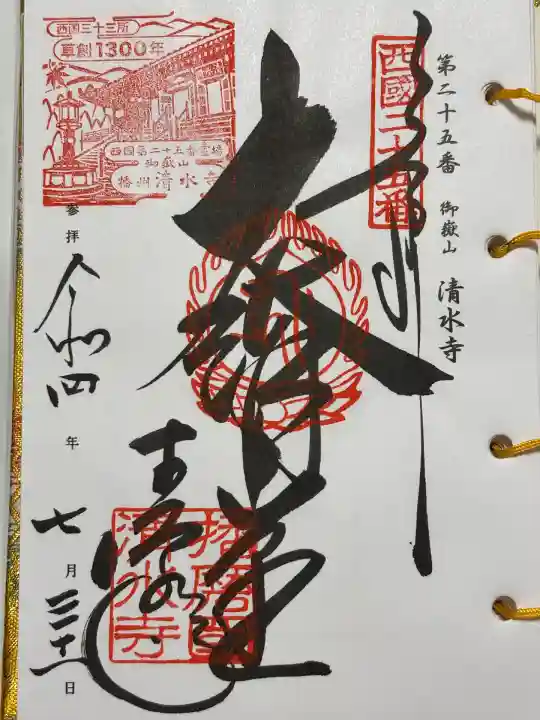 第二十五番 御嶽山 清水寺
奉拝
西國二十五番
大講堂
清水寺
播磨國
清水寺
西国三十三所
草創1300年
西国第二十五番霊場
御嶽山
播州清水寺
参拝
令和四年
七月三十一日